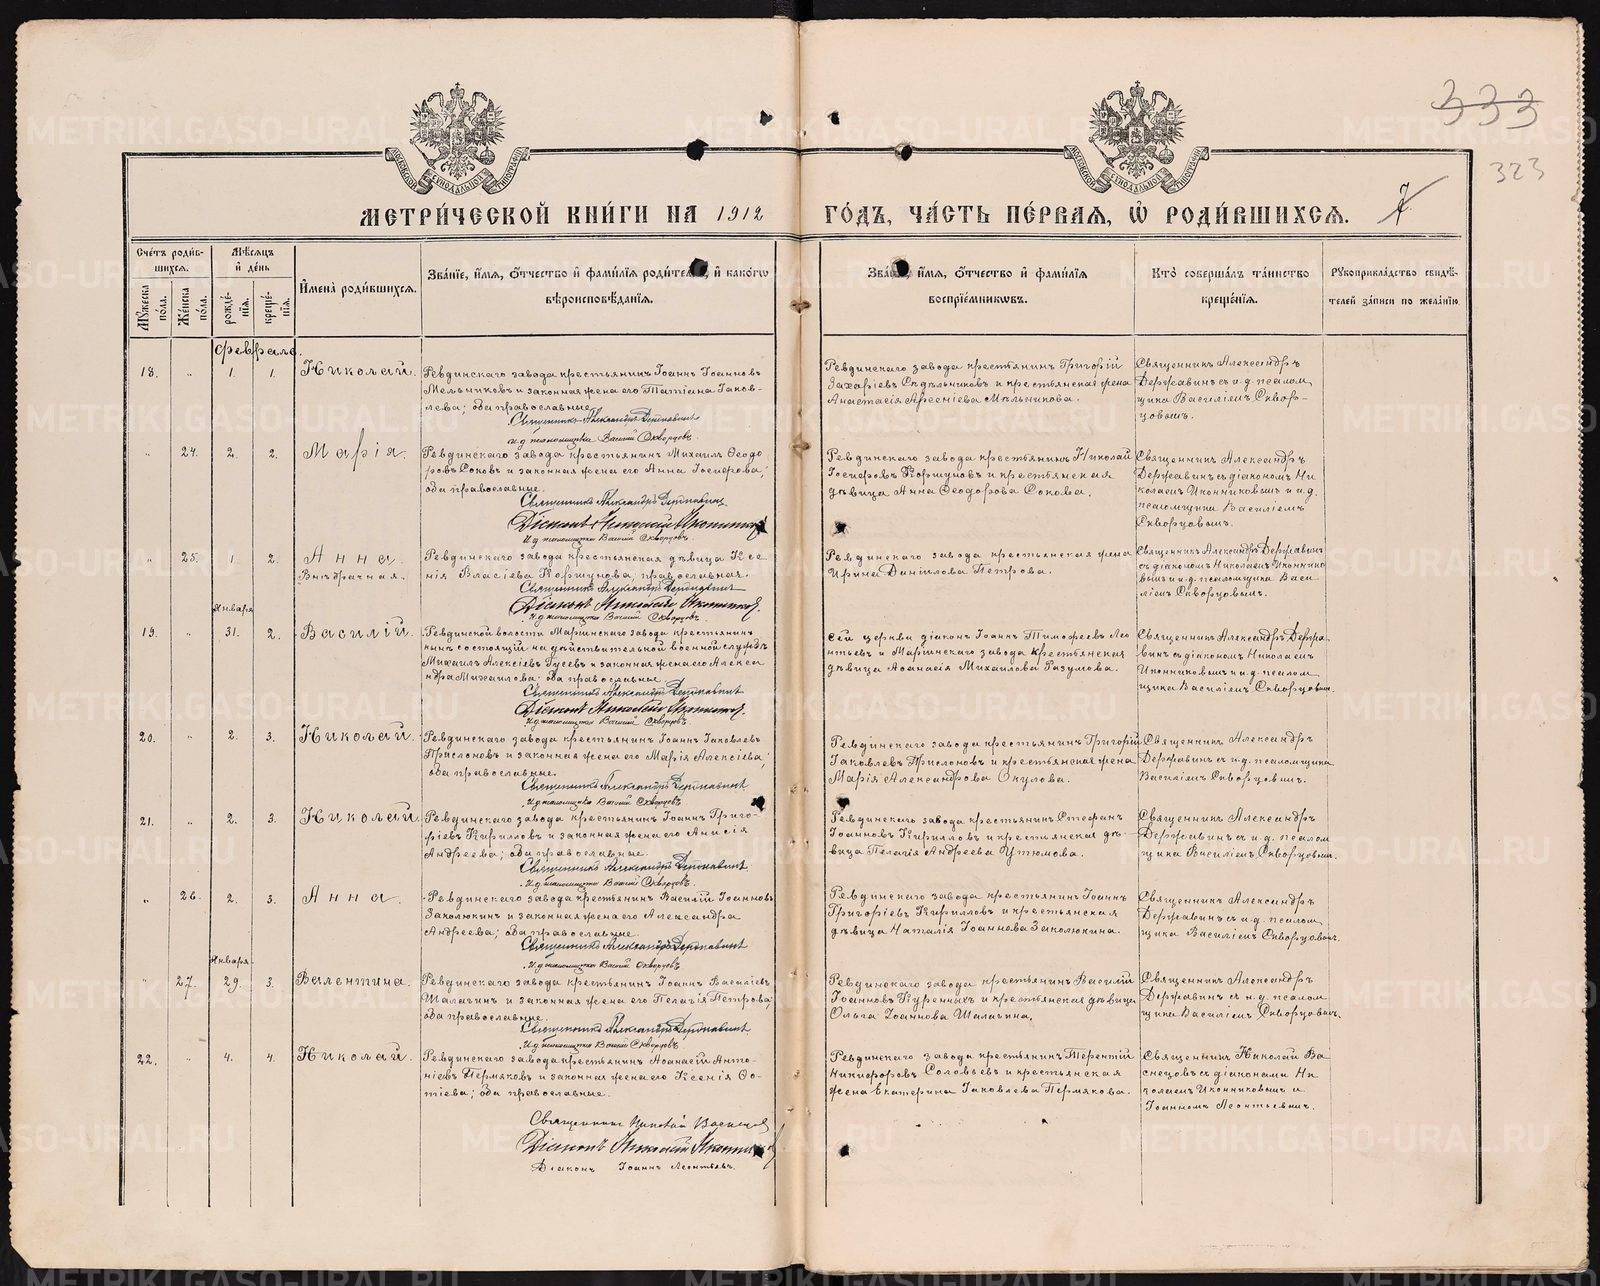 333
323
МЕТРИ́ЧЕСКОЙ КНИ́ГИ НА 1912
ГО́ДЪ, ЧА́СТЬ ПЕ́РВАЯ, Ѿ РОДИ́ВШИХСЯ.
7
Сче́тъ роди́в-
шихся.
Му́жеска по́ла.
Же́нска по́ла.
Мѣ́сяцъ
и де́нь
рожде́-
нія.
креще́-
нія.
Имена̀ роди́вшихся.
Зва́ніе, и́мя, о́тчество и фами́лія роди́телей, и како́гѡ
вѣроисповѣ́данія.
Зва́ніе, и́мя, о́тчество и фами́лія
воспріе́мникѡвъ.
Кто̀ соверша́лъ та́инство
креще́нія.
Рукоприкла́дство свидѣ́-
телей за́писи по жела́нію.
Февраль.
18. " 1. 1. Николай.
Ревдинскаго завода крестьянинъ Іоаннъ Іоанновъ
Мельниковъ и законная жена его Татіана Іаков-
лева; оба православные.
Священникъ Александръ Державинъ
И.д. псаломщика Василій Скворцовъ.
Ревдинскаго завода крестьянинъ Григорій
Захаріевъ Сидѣльниковъ и крестьянская жена
Анастасія Арсеніева Мельникова.
Священникъ Александръ
Державинъ съ и.д. псалом
щика Василіемъ Сквор-
цовымъ.
" 24. 2. 2. Марія.
Ревдинскаго завода крестьянинъ Михаилъ Ѳеодо
ровъ Соковъ и законная жена его Анна Іосифова;
оба православные.
Священникъ Александръ Державинъ
Діаконъ Николай Иконниковъ
И.д. псаломщика Василій Скворцовъ.
Ревдинскаго завода крестьянинъ Николай
Іосифовъ Коршуновъ и крестьянская
дѣвица Анна Ѳеодорова Сокова.
Священникъ Александръ
Державинъ съ діакономъ Ни
колаемъ Иконниковымъ и и.д.
псаломщика Василіемъ
Скворцовымъ.
" 25. 1. 2. Анна.
Внѣбрачная.
Ревдинскаго завода крестьянская дѣвица Ксе
нія Власіева Коршунова; православная.
Священникъ Александръ Державинъ
Діаконъ Николай Иконниковъ.
И.д. псаломщика Василій Скворцовъ.
Ревдинскаго завода крестьянская жена
Ирина Даніилова Петрова.
Священникъ Александръ Державинъ
съ діакономъ Николаемъ Иконнико
вымъ и и.д. псаломщика Васи
ліемъ Скворцовымъ.
Января
19. " 31. 2. Василій.
Ревдинской волости Маріинскаго завода крестья-
нинъ состоящій на дѣйствительной военной службѣ
Михаилъ Алексіевъ Гусевъ и законная жена его Алекса
ндра Михаилова; оба православные
Священникъ Александръ Державинъ
Діаконъ Николай Иконниковъ.
И.д. псаломщика Василій Скворцовъ.
Сей церкви діаконъ Іоаннъ Тимофеевъ Лео
нтьевъ и Маріинскаго завода крестьянская
дѣвица Аѳанасія Михаилова Разумова.
Священникъ Александръ Держа
винъ съ діакономъ Николаемъ
Иконниковымъ и и.д. псалом
щика Василіемъ Скворцовымъ.
20. " 2. 3. Николай.
Ревдинскаго завода крестьянинъ Іоаннъ Іаковлевъ
Прислоновъ и законная жена его Марія Алексіева;
оба православные.
Священникъ Александръ Державинъ
И.д. псаломщика Василій Скворцовъ.
Ревдинскаго завода крестьянинъ Григорій
Іаковлевъ Прислоновъ и крестьянская жена
Марія Александрова Окулова.
Священникъ Александръ
Державинъ съ и.д. псаломщика
Василіемъ Скворцовымъ.
21. " 2. 3. Николай.
Ревдинскаго завода крестьянинъ Іоаннъ Григо-
ріевъ Кирилловъ и законная жена его Анисія
Андреева; оба православные.
Священникъ Александръ Державинъ
И.д. псаломщика Василій Скворцовъ.
Ревдинскаго завода крестьянинъ Стефанъ
Іоанновъ Кирилловъ и крестьянская дѣ-
вица Пелагія Андреева Утюмова.
Священникъ Александръ
Державинъ съ и.д. псалом
щика Василіемъ Скворцовымъ.
" 26. 2. 3. Анна.
Ревдинскаго завода крестьянинъ Василій Іоанновъ
Заколюкинъ и законная жена его Александра
Андреева; оба православные.
Священникъ Александръ Державинъ
И.д. псаломщика Василій Скворцовъ
Ревдинскаго завода крестьянинъ Іоаннъ
Григоріевъ Кирилловъ и крестьянская
дѣвица Наталія Іоаннова Заколюкина.
Священникъ Александръ
Державинъ съ и.д. псалом
щика Василіемъ Скворцовымъ.
Января
" 27. 29. 3. Валентина.
Ревдинскаго завода крестьянинъ Іоаннъ Василіевъ
Шалагинъ и законная жена его Пелагія Петрова;
оба православные.
Священникъ Александръ Державинъ
И.д. псаломщика Василій Скворцовъ
Ревдинскаго завода крестьянинъ Василій
Іоанновъ Куренныхъ и крестьянская дѣвица
Ольга Іоаннова Шалагина.
Священникъ Александръ
Державинъ съ и.д. псалом
щика Василіемъ Скворцовымъ.
22. " 4. 4. Николай.
Ревдинскаго завода крестьянинъ Аѳанасій Анто-
ніевъ Пермяковъ и законная жена его Ксенія Фо-
тіева; оба православные.
Священникъ Николай Васнецовъ
Діаконъ Николай Иконниковъ
Діаконъ Іоаннъ Леонтьевъ.
Ревдинскаго завода крестьянинъ Терентій
Никифоровъ Соловьевъ и крестьянская
жена Екатерина Іаковлева Пермякова.
Священникъ Николай Ва
снецовъ съ діаконами Ни
колаемъ Иконниковымъ и
Іоанномъ Леонтьевымъ.